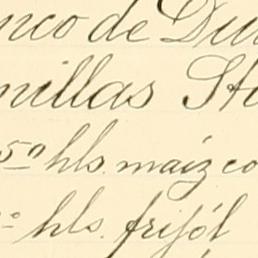 nco de Du
nillas St
50 hls. maíz co
hls. frijól